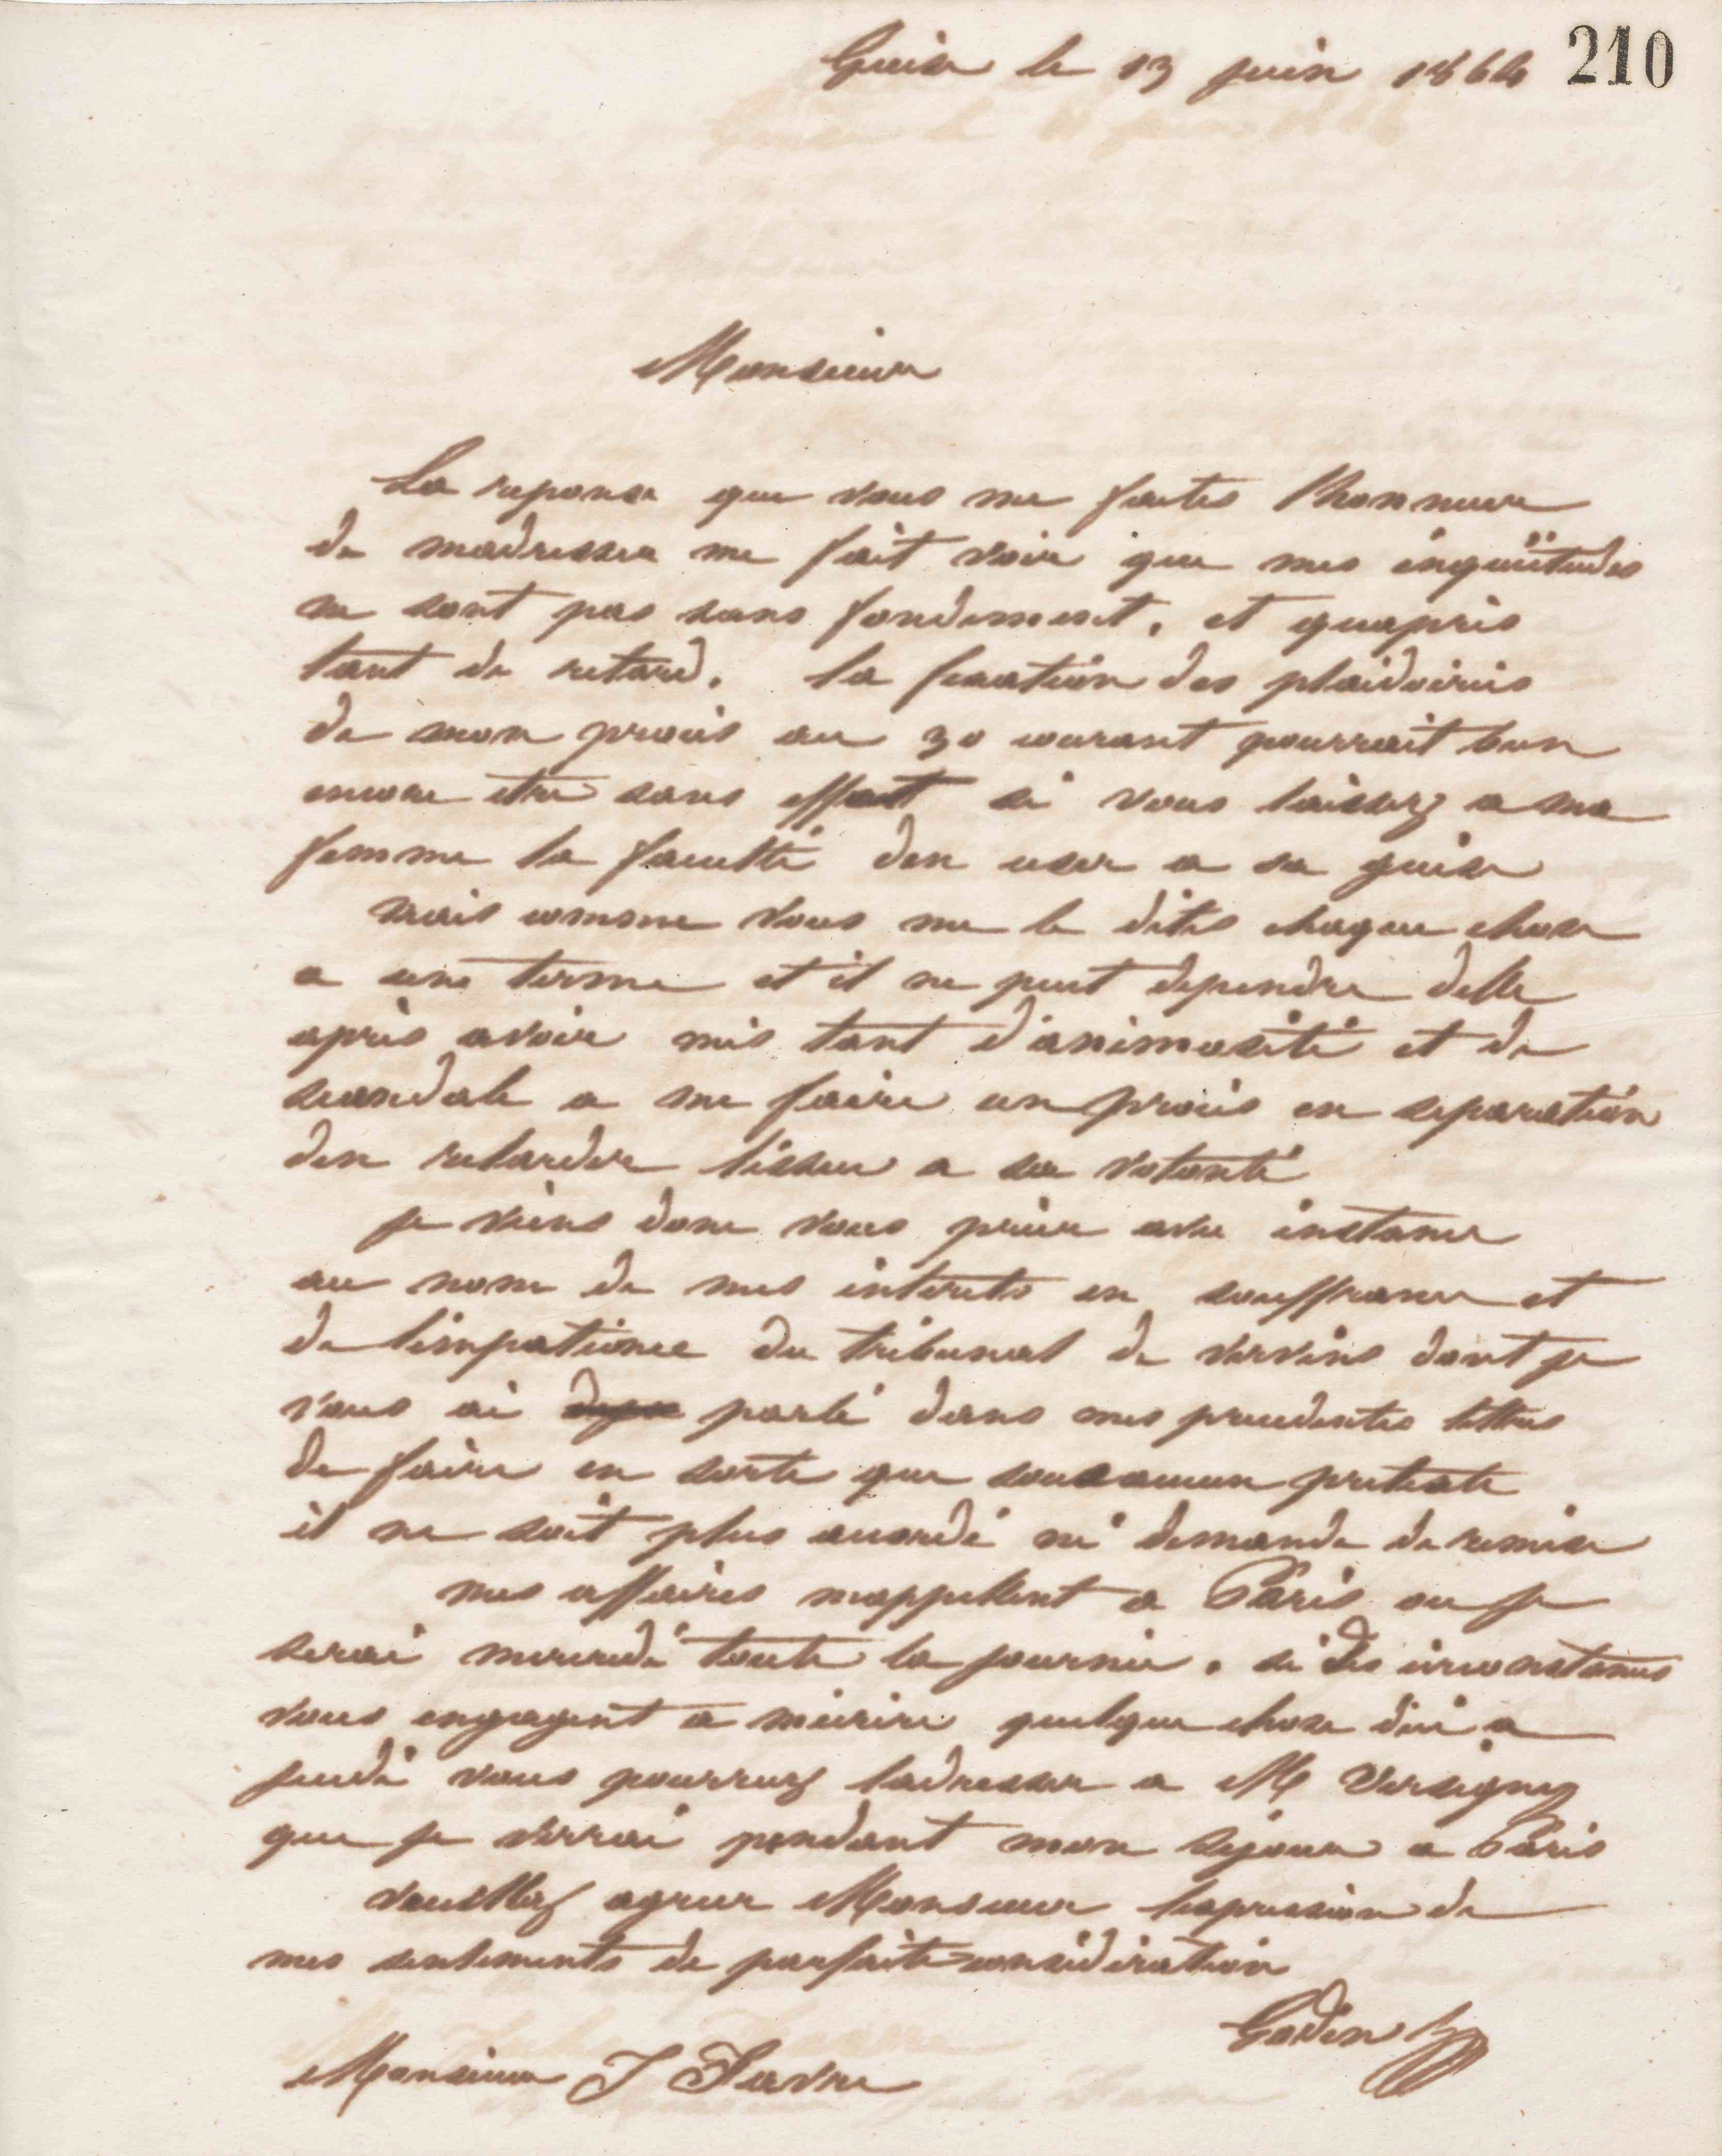 Guise le 13 juin 1864 210
Monsieur
La reponse que vous me faites l'honneur
de madresser me fait voir que mes inquiétudes
ne sont pas sans fondement, et quapris
tant de retard, la fixation des plaidoiries
de mon procès au 30 courant pourrait bien
encore etre sans effet si vous laissez a ma
femme la faculté den user a sa guise
mais comme vous me le dites chaque chose
a une terme et il ne peut dependre delle
après avoir mis tant d'animosité et de
scandale a me faire un procès en separation
den retarder lissue a sa volonté
je viens donc vous prier avec instance
au nom de mes interets en souffrance et
de limpatience du tribunal de vervins dont je
vous ai deja parlé dans mes precedentes lettres
de faire en sorte que sous aucun pretexte
il ne soit plus accordé ni demande de remise
mes affaires mappellent a Paris ou je
serai mercredi toute la journée. si des circonstances
vous engagent a mécrire quelque chose dici a
jeudi vous pourrez ladresser a M Versigny
que je verrai pendant mon sejour a Paris
veuillez agreer Monsieur lexpression de
mes sentements de parfaite consideration
Godin
Monsieur J Favre